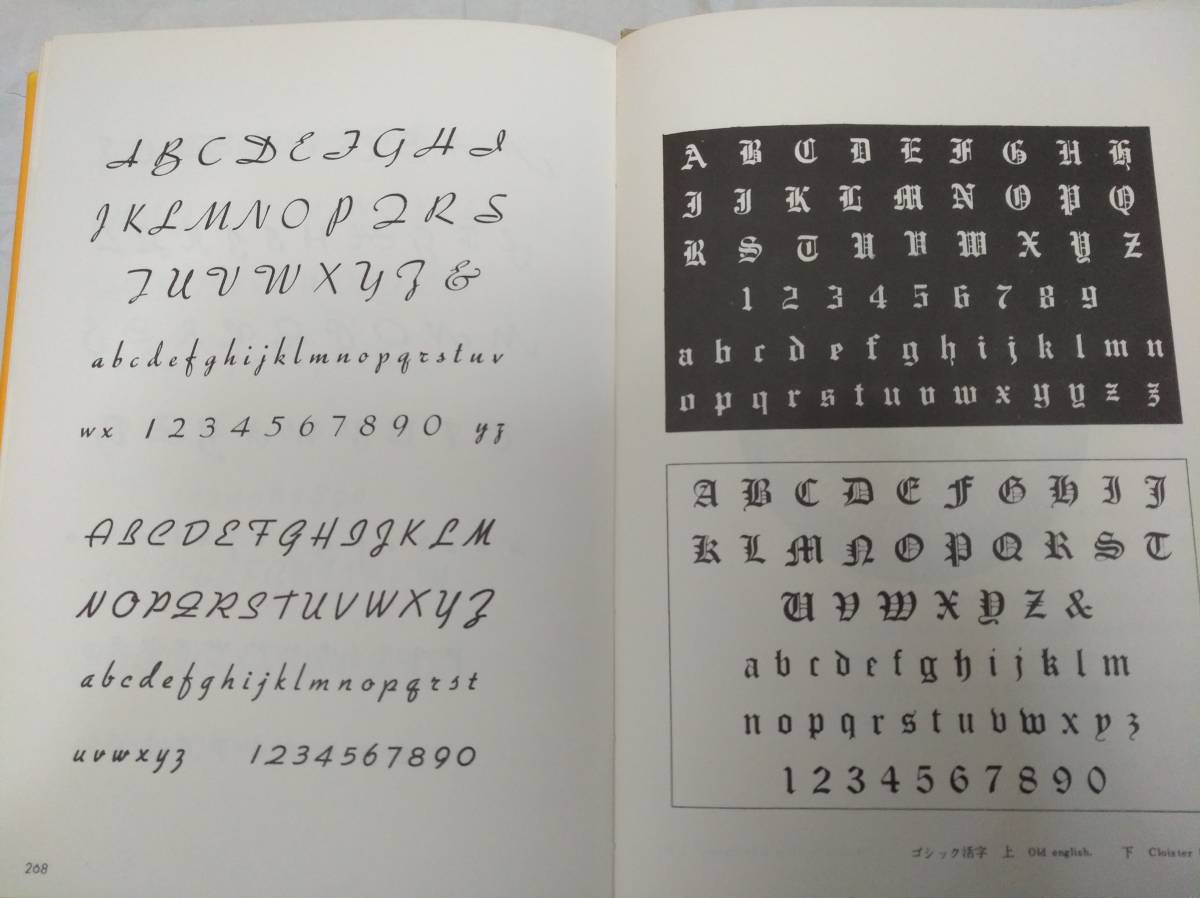 A B C D E F G H I
J K L M N O P Q R S
T U V W X Y Z &
a b c d e f g h i j k l m n o p q r s t u v
w x 1 2 3 4 5 6 7 8 9 0 y z
A B C D E F G H I J K L M
N O P Q R S T U V W X Y Z
a b c d e f g h i j k l m n o p q r s t
u v w x y z 1 2 3 4 5 6 7 8 9 0
268
A B C D E F G H H
I J K L M N O P Q
R S T U V W X Y Z
1 2 3 4 5 6 7 8 9
a b c d e f g h i j k l m n
o p q r s t u v w x y y z z
A B C D E F G H I J
K L M N O P Q R S T
U V W X Y Z &
a b c d e f g h i j k l m
n o p q r s t u v w x y z
1 2 3 4 5 6 7 8 9 0
ゴシック活字 上 Old english. 下 Cloister